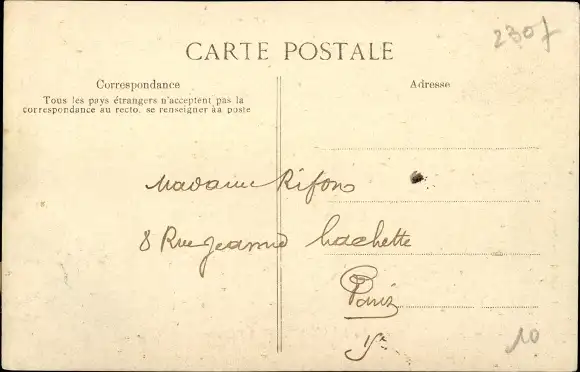 2307
CARTE POSTALE
Correspondance
Tous les pays étrangers n'acceptent pas la
correspondance au recto, se renseigner àa poste
Adresse
Madame Rifons
8 Rue Jeanne Hachette
Paris
15e
10